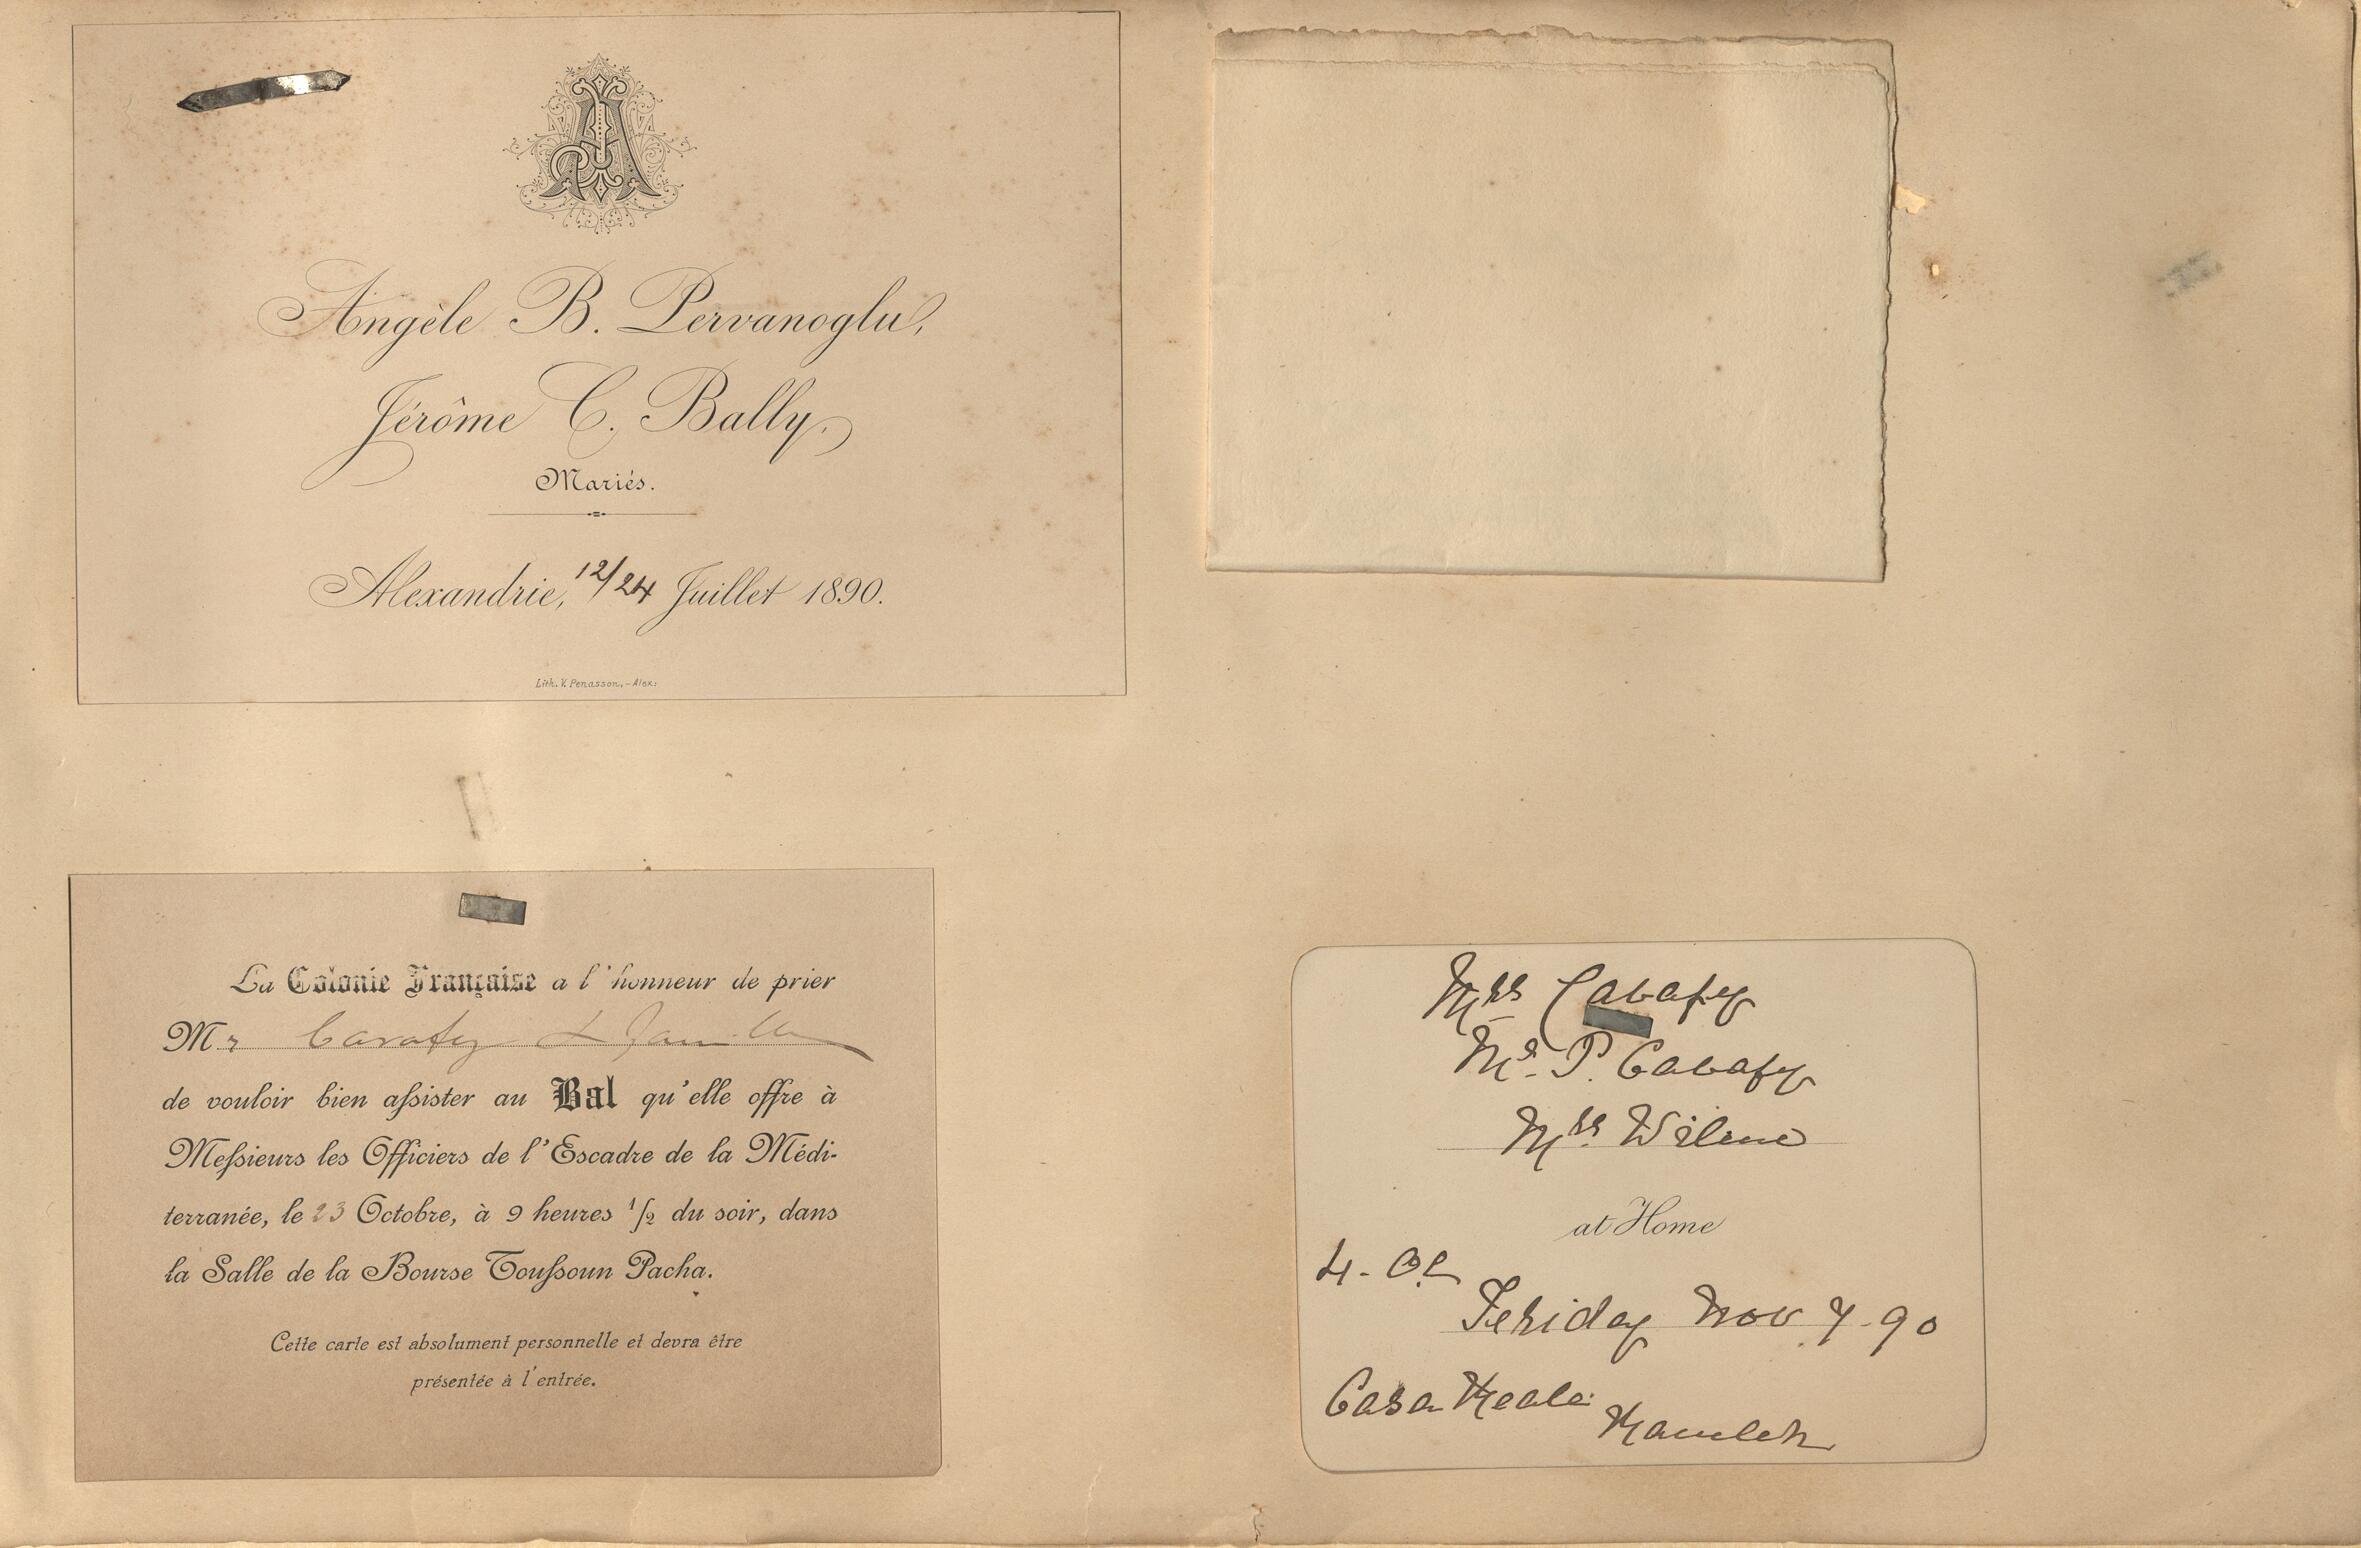 Angèle B. Pervanoglu,
Jérôme C. Bally.
Mariés.
Alexandrie, 12/24 Juillet 1890.
Lith. V. Penasson, - Alex:
La Colonie Française a l'honneur de prier
Mr Cavafy & famille
de vouloir bien assister au Bal qu'elle offre à
Messieurs les Officiers de l'Escadre de la Médi-
terranée, le 23 Octobre, à 9 heures 1/2 du soir, dans
la Salle de la Bourse Toussoun Pacha.
Cette carte est absolument personnelle et devra être
présentée à l'entrée.
Mrs Cavafy
Mr. P. Cavafy
Mrs.
at Home
4-
Friday Nov 7-90
Casa
Ramleh